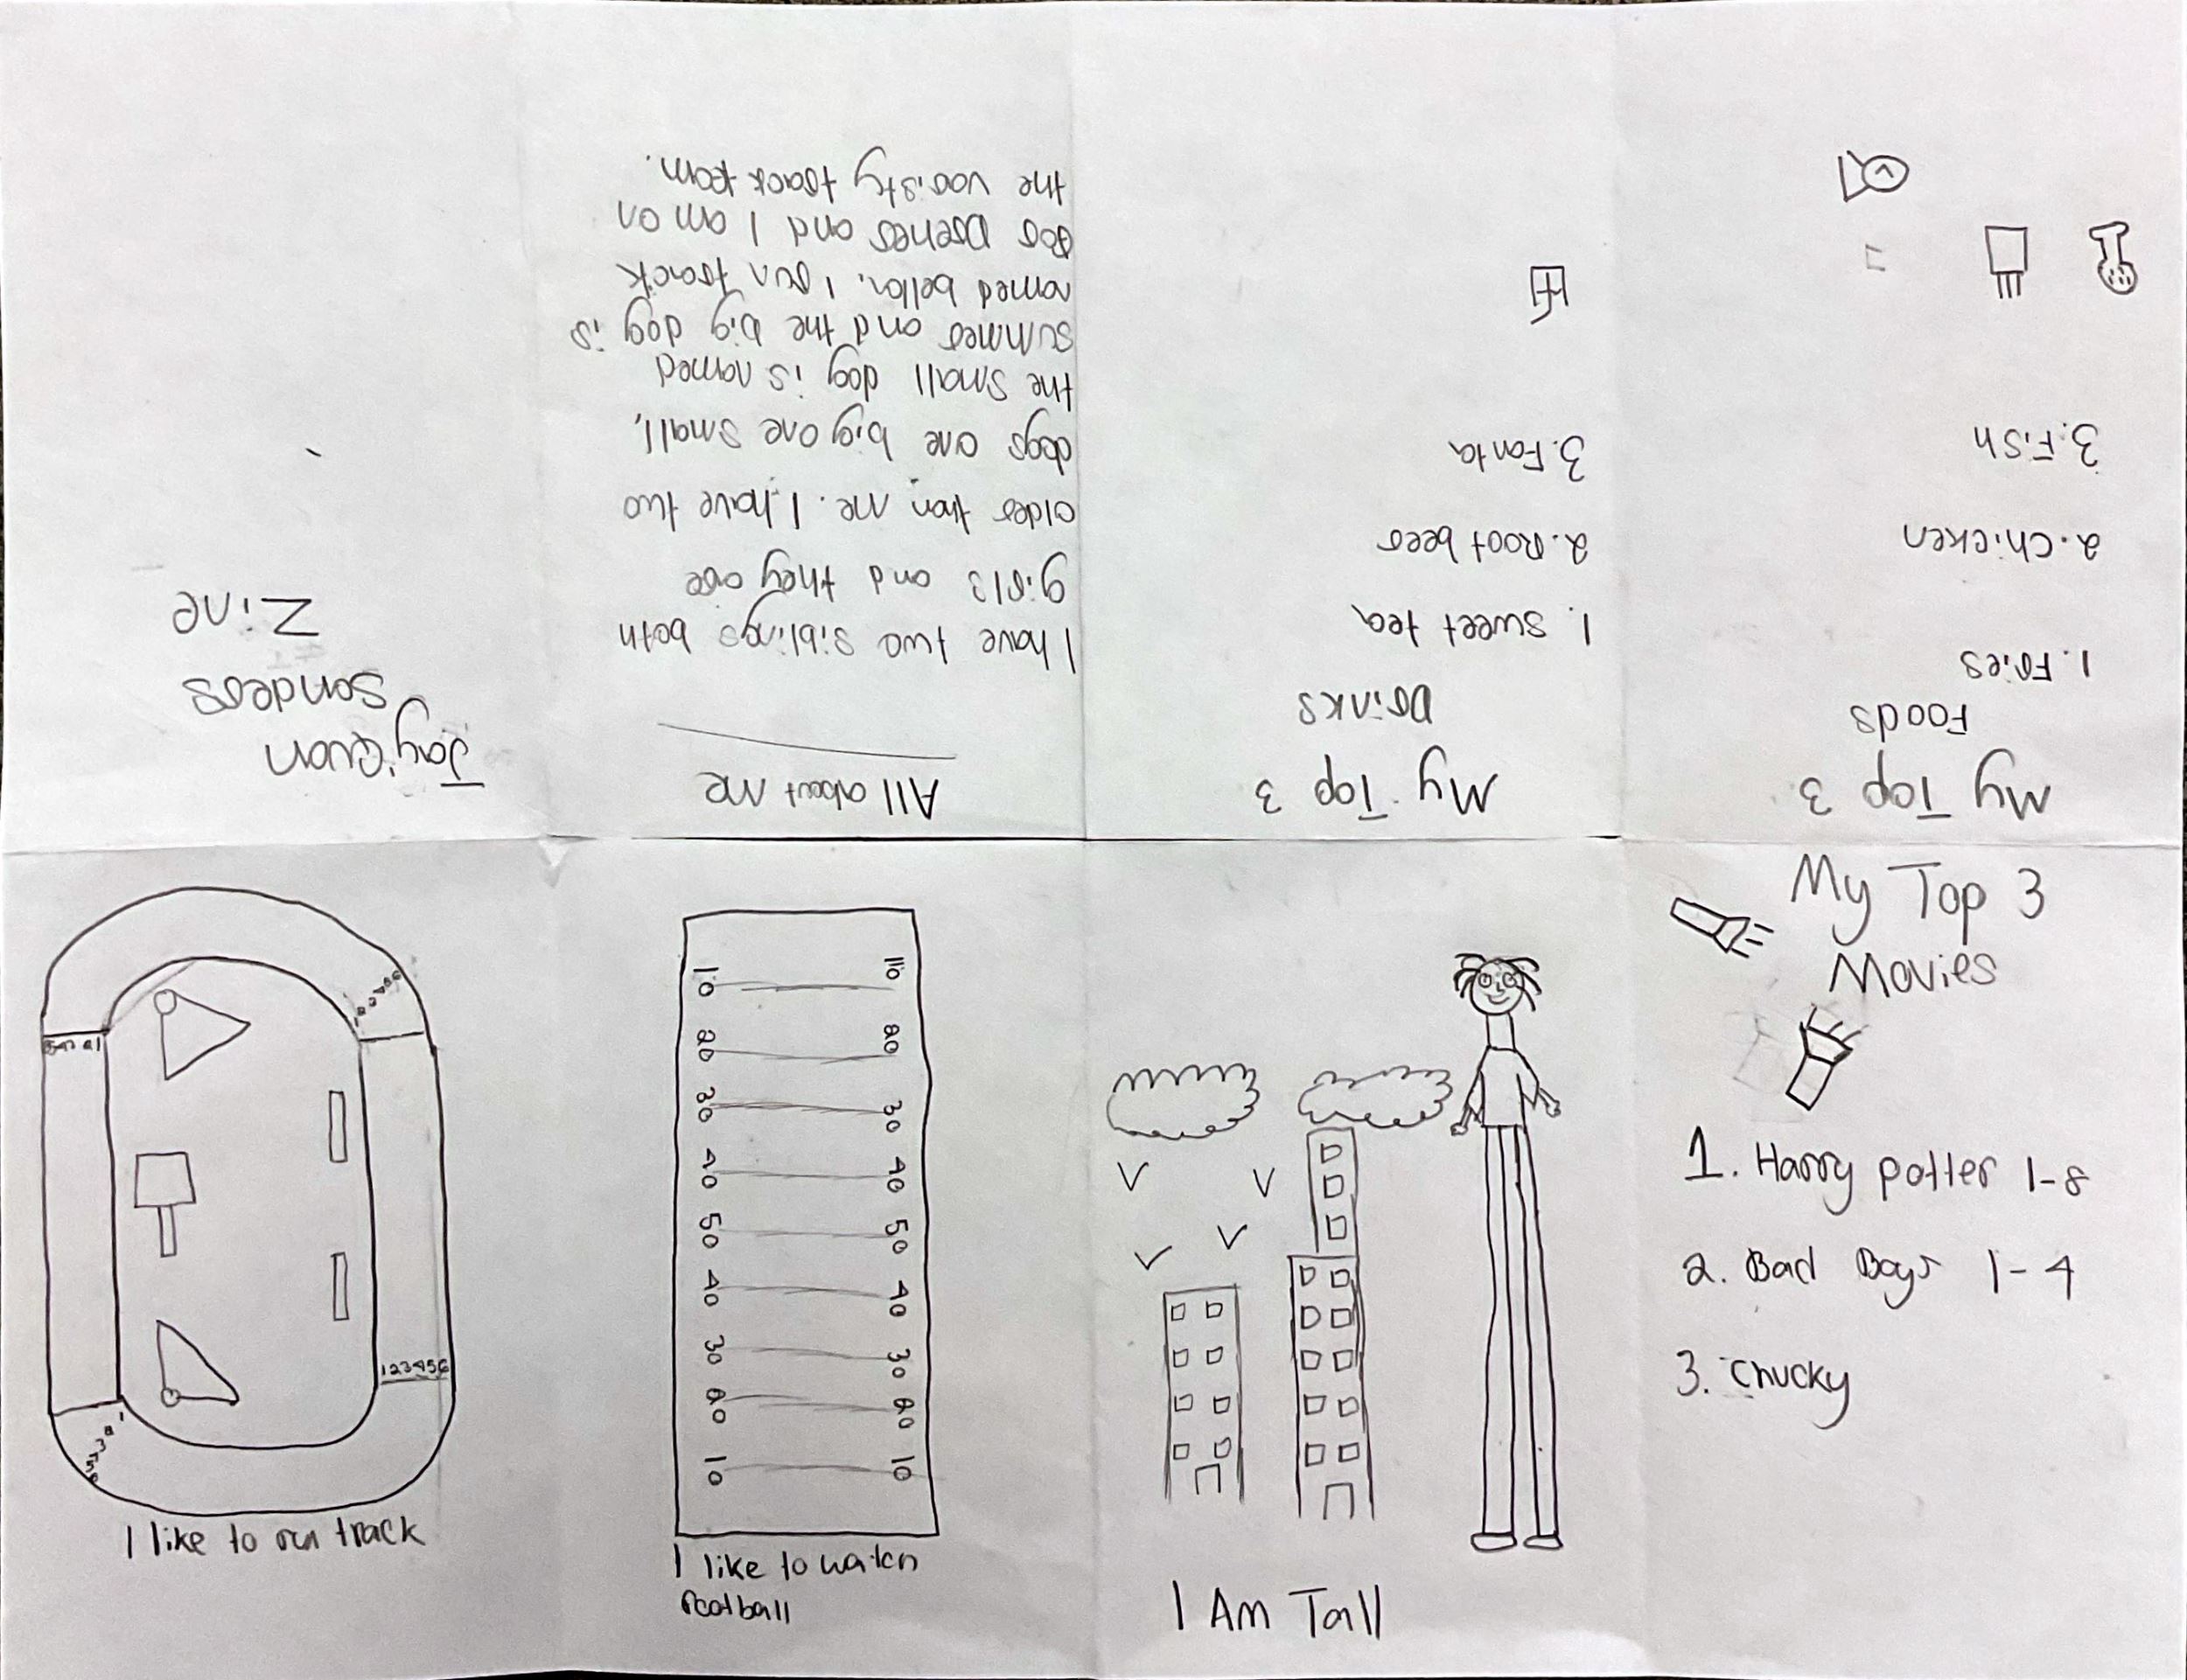 Jay'Quan
Sanders
Zine
123456
I like to run track
10 10
20 20
30 30
40 40
50 50
40 40
30 30
20 20
10 10
I like to watch
football
I Am Tall
My Top 3
Movies
1. Harry potter 1-8
2. Bad Boys 1-4
3. Chucky
My Top 3
Foods
1. Fries
2. Chicken
3. Fish
My Top 3
Drinks
1. sweet tea
2. Root beer
3. Fanta
All about Me
I have two siblings both
girls and they are
older than me. I have two
dogs one big one small,
the small dog is named
summer and the big dog is
named bella, I run track
for Dreher and I am on
the varisty track team.